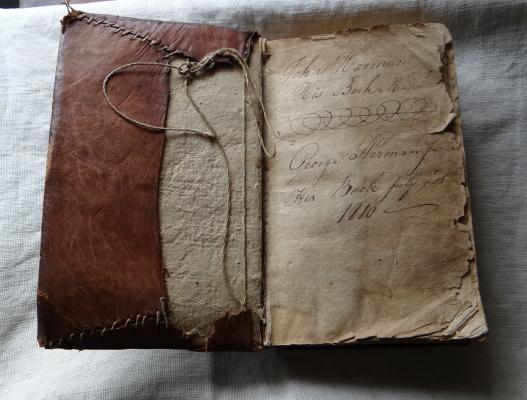 John Harman
His Book March
George Herman
His Book July 9th
1810